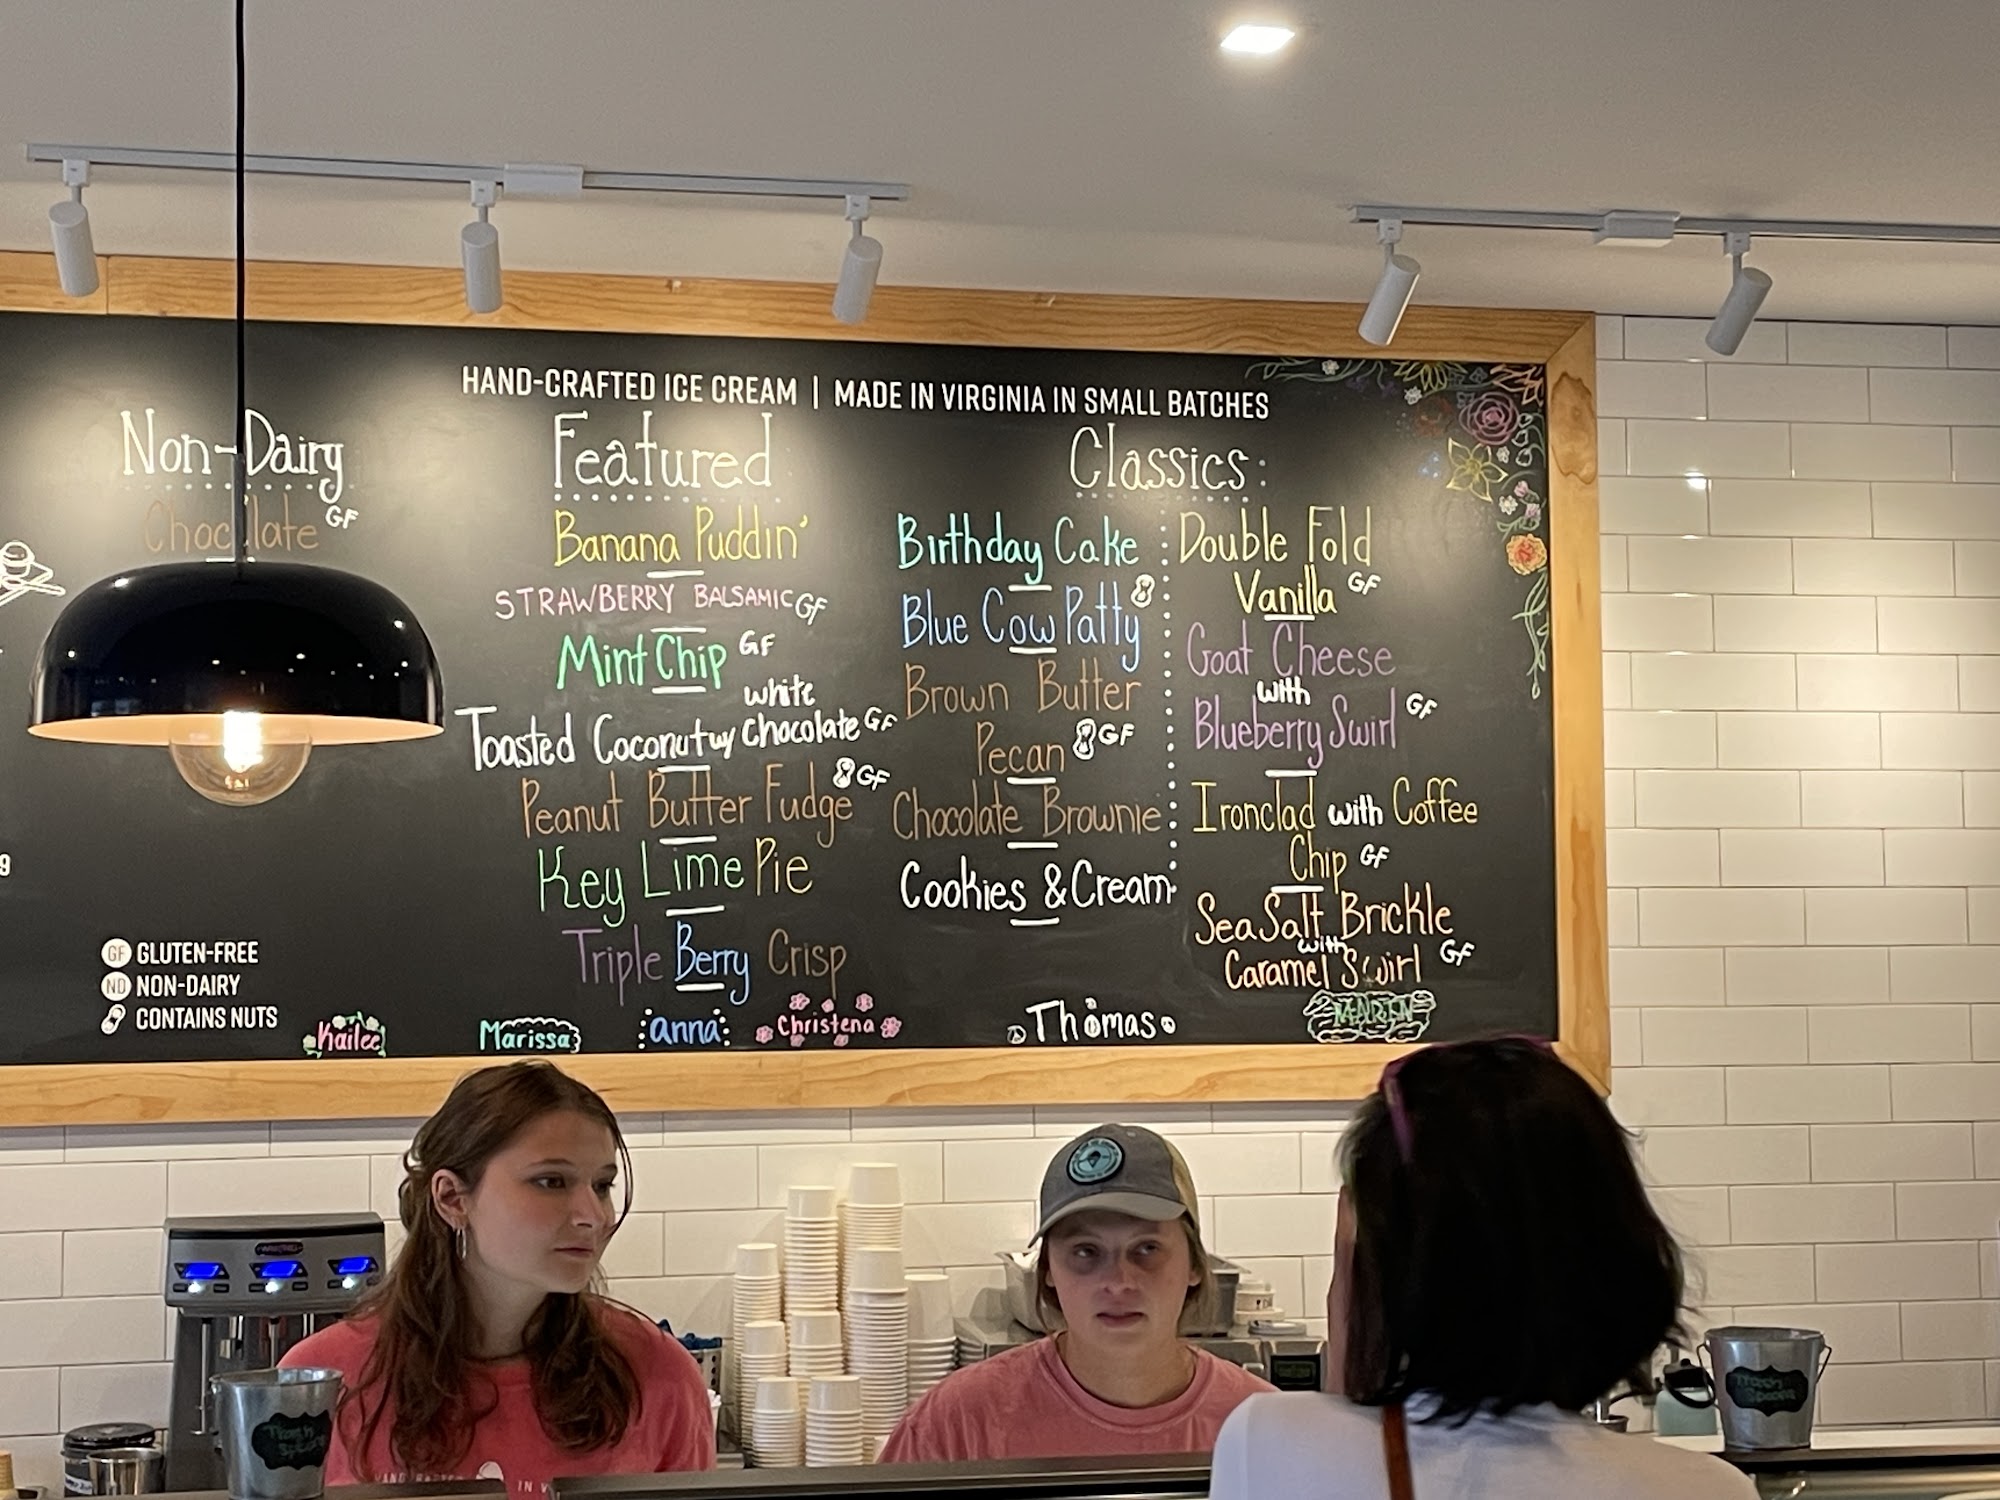 HAND-CRAFTED ICE CREAM | MADE IN VIRGINIA IN SMALL BATCHES
Non-Dairy
Chocolate GF
9
GF GLUTEN-FREE
ND NON-DAIRY
CONTAINS NUTS
Featured
Banana Puddin'
STRAWBERRY BALSAMIC GF
Mint Chip GF
white
Toasted Coconut w/ Chocolate GF
Peanut Butter Fudge GF
Key Lime Pie
Triple Berry Crisp
Classics:
Birthday Cake
Blue Cow Patty
Brown Butter
Pecan GF
Chocolate Brownie
Cookies & Cream
Double Fold
Vanilla GF
Goat Cheese
with
Blueberry Swirl GF
Ironclad with Coffee
Chip GF
Sea Salt Brickle
with
Caramel Swirl GF
Kailee
Marissa
anna
Christena
Thomas
Trash
Spoons
Trash
Spoons
HAND CRAFTED
IN V